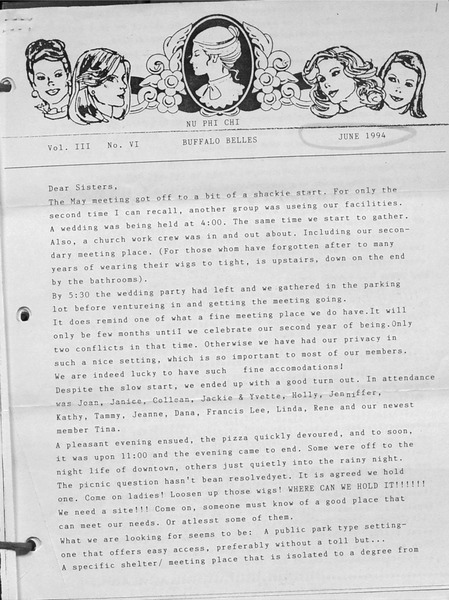 1
NU PHI CHI
Vol. III No. VI BUFFALO BELLES JUNE 1994
Dear Sisters,
The May meeting got off to a bit of a shackie start. For only the
second time I can recall, another group was useing our facilities.
A wedding was being held at 4:00. The same time we start to gather.
Also, a church work crew was in and out about. Including our secon-
dary meeting place. (For those whom have forgotten after to many
years of wearing their wigs to tight, is upstairs, down on the end
by the bathrooms).
By 5:30 the wedding party had left and we gathered in the parking
lot before ventureing in and getting the meeting going.
It does remind one of what a fine meeting place we do have.It will
only be few months until we celebrate our second year of being.Only
two conflicts in that time. Otherwise we have had our privacy in
such a nice setting, which is so important to most of our members.
We are indeed lucky to have such fine accomodations!
Despite the slow start, we ended up with a good turn out. In attendance
was Joan, Janice, Collean, Jackie & Yvette, Holly, Jenniffer,
Kathy, Tammy, Jeanne, Dana, Francis Lee, Linda, Rene and our newest
member Tina.
A pleasant evening ensued, the pizza quickly devoured, and to soon,
it was upon 11:00 and the evening came to end. Some were off to the
night life of downtown, others just quietly into the rainy night.
The picnic question hasn't bean resolvedyet. It is agreed we hold
one. Come on ladies! Loosen up those wigs! WHERE CAN WE HOLD IT!!!!!!
We need a site!!! Come on, someone must know of a good place that
can meet our needs. Or atlesst some of them.
What we are looking for seems to be: A public park type setting-
one that offers easy access, preferably without a toll but...
A specific shelter/ meeting place that is isolated to a degree from